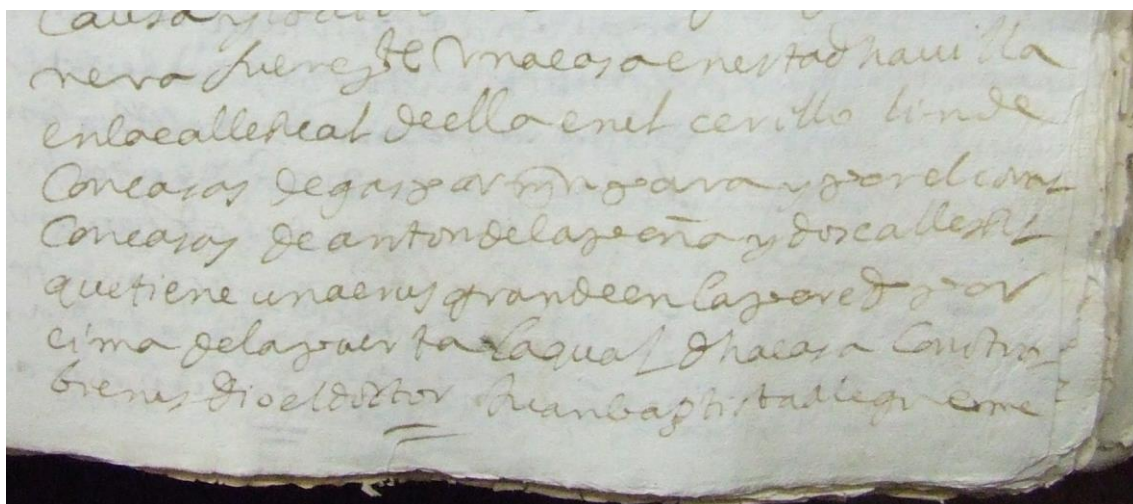 causa y
nera fueres de una casa en esta dha uilla
en la calle Real de ella en el cerillo linde
con casas de gaspar mrn para y por el corral
con casas de anton de la peña y dos calles
que tiene una crus grande en la pared por
cima de la puerta la qual dha casa con otros
bienes dio el doctor Juan baptista